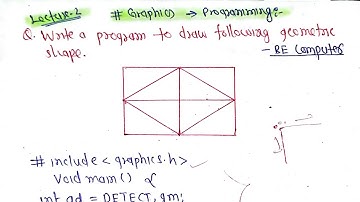 Lecture-2
# Graphics → Programming:-
Q. Write a program to draw following geometric
shape.
- BE Computer
# include <graphics.h>
void main() {
int gd = DETECT, gm;